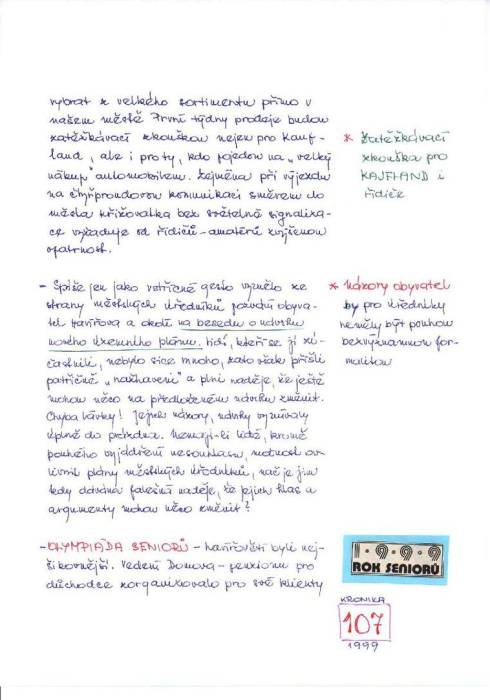 vybrat z velkého sortimentu přímo v
našem městě. První týdny prodeje budou
zatěžkávací zkouškou nejen pro Kauf-
land, ale i pro ty, kdo pojedou na „velký
nákup" automobilem. Zejména při výjezdu
na čtyřproudovou komunikaci směrem do
města křižovatka bez světelné signaliza-
ce vyžaduje od řidičů-amatérů zvýšenou
opatrnost.
* Zatěžkávací
zkouška pro
KAUFLAND i
řidiče
- Spíše jen jako vstřícné gesto vyznělo ze
strany městských úředníků pozvání obyva-
tel Havířova a okolí na besedu o návrhu
nového územního plánu. Lidí, kteří se jí zú-
častnili, nebylo sice mnoho, zato však přišli
patřičně „nažhavení" a plni naděje, že ještě
mohou něco na předloženém návrhu změnit.
Chyba lávky! Jejich názory, návrhy vyznívaly
úplně do prázdna. Nemají-li lidé, kromě
pouhého vyjádření nesouhlasu, možnost ov-
livnit plány městských úředníků, nač je jim
tedy dávána falešná naděje, že jejich hlas a
argumenty mohou něco změnit?
* Názory obyvatel
by pro úředníky
neměly být pouhou
bezvýznamnou for-
malitou
- OLYMPIÁDA SENIORŮ - havířovští byli nej-
šikovnější. Vedení Domova-penzionu pro
důchodce zorganizovalo pro své klienty
1999
ROK SENIORŮ
KRONIKA
107
1999